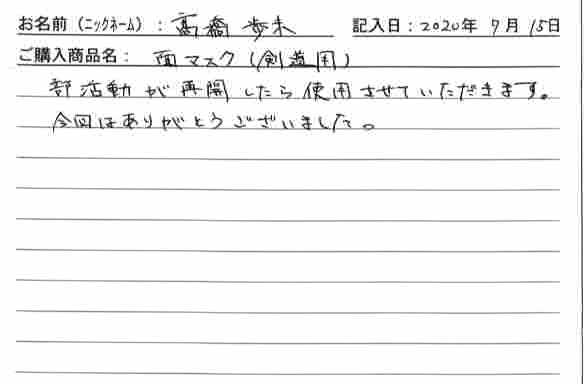 お名前（ニックネーム）：髙橋 歩未 記入日：2020年 7月 15日
ご購入商品名： 面マスク（剣道用）
部活動が再開したら使用させていただきます。
今回はありがとうございました。